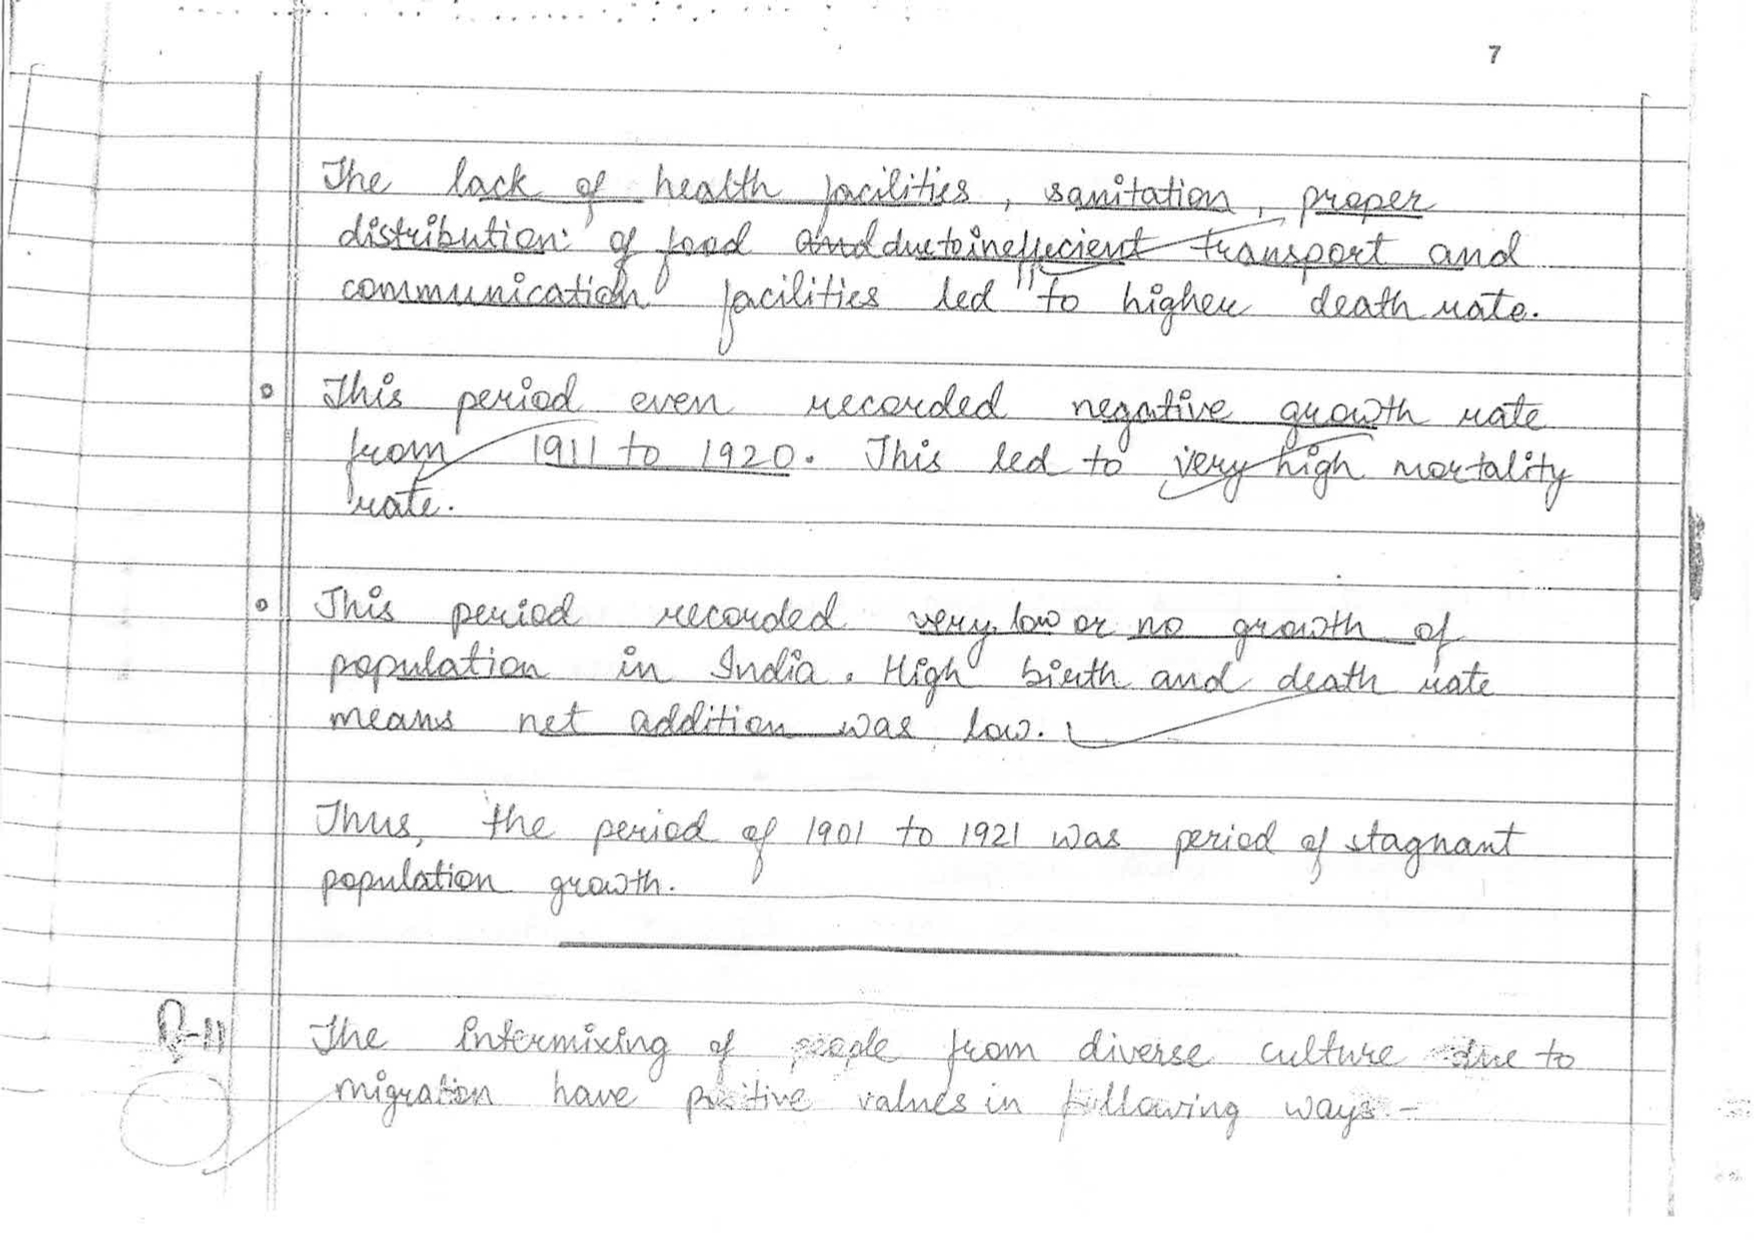 7
The lack of health facilities, sanitation, proper
distribution of food and due to ineffecient transport and
communication facilities led to higher death rate.
This period even recorded negative growth rate
from 1911 to 1920. This led to very high mortality
rate.
This period recorded very low or no growth of
population in India. High birth and death rate
means net addition was low.
Thus, the period of 1901 to 1921 was period of stagnant
population growth.
Q-11 The intermixing of people from diverse culture due to
migration have positive values in following ways -